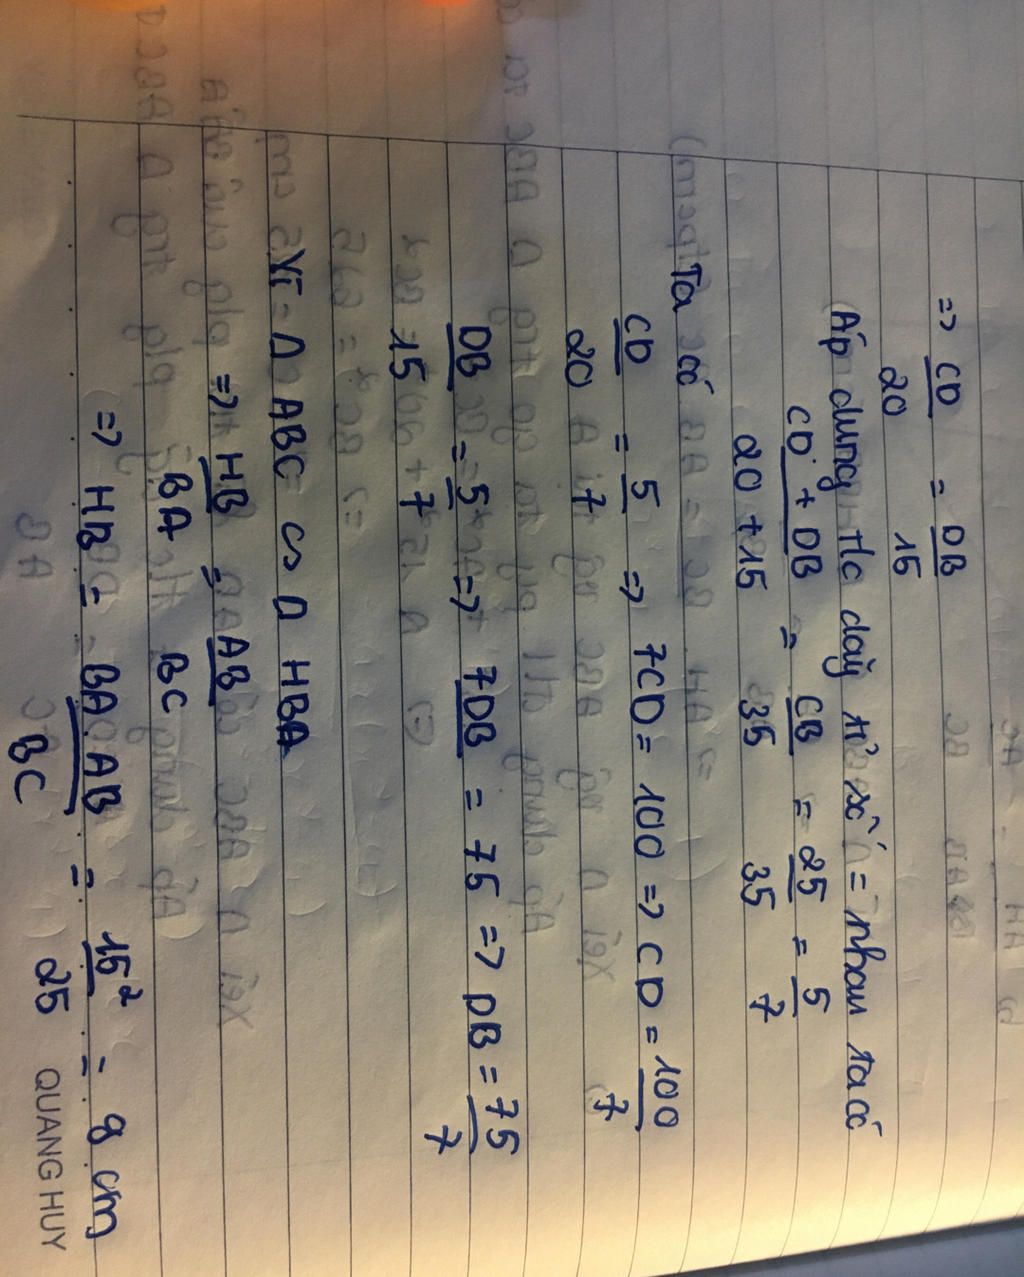 => CD/20 = DB/15
Áp dụng t/c dãy tỉ số = nhau ta có
CD + DB/20 + 15 = CB/35 = 25/35 = 5/7
Ta có
CD/20 = 5/7 => 7CD = 100 => CD = 100/7
DB/15 = 5/7 => 7DB = 75 => DB = 75/7
Vì Δ ABC ∽ Δ HBA
=> HB/BA = AB/BC
=> HB = BA.AB/BC = 15²/25 = 9 cm
QUANG HUY